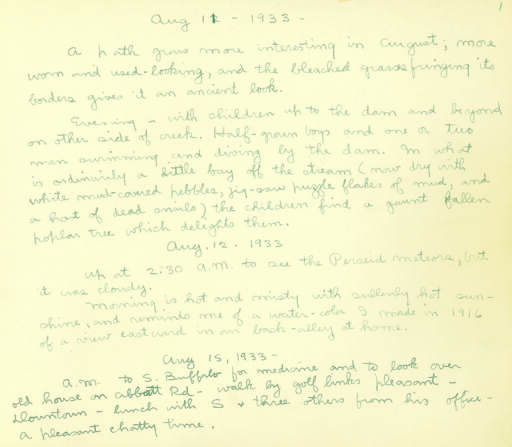 1
Aug 11 - 1933 -
A path grows more interesting in August; more
worn and used-looking, and the bleached grass fringing its
borders gives it an ancient look.
Evening - with children up to the dam and beyond
on other side of creek. Half-grown boys and one or two
men swimming and diving by the dam. In what
is ordinarily a little bay off the stream (now dry with
white mud-cared pebbles, jig-saw puzzle flakes of mud, and
a host of dead snails) the children find a gaunt fallen
poplar tree which delights them.
Aug. 12. 1933
up at 2:30 a.m. to see the Perseid meteors, but
it was cloudy.
Morning is hot and misty with sullenly hot sun-
shine, and reminds me of a water-color I made in 1916
of a view eastward in our back-alley at home.
Aug 15, 1933 -
a.m. to S. Buffalo for medicine and to look over
old house on abbott Rd - walk by golf links pleasant -
Downtown - lunch with S & three others from his office -
a pleasant chatty time.